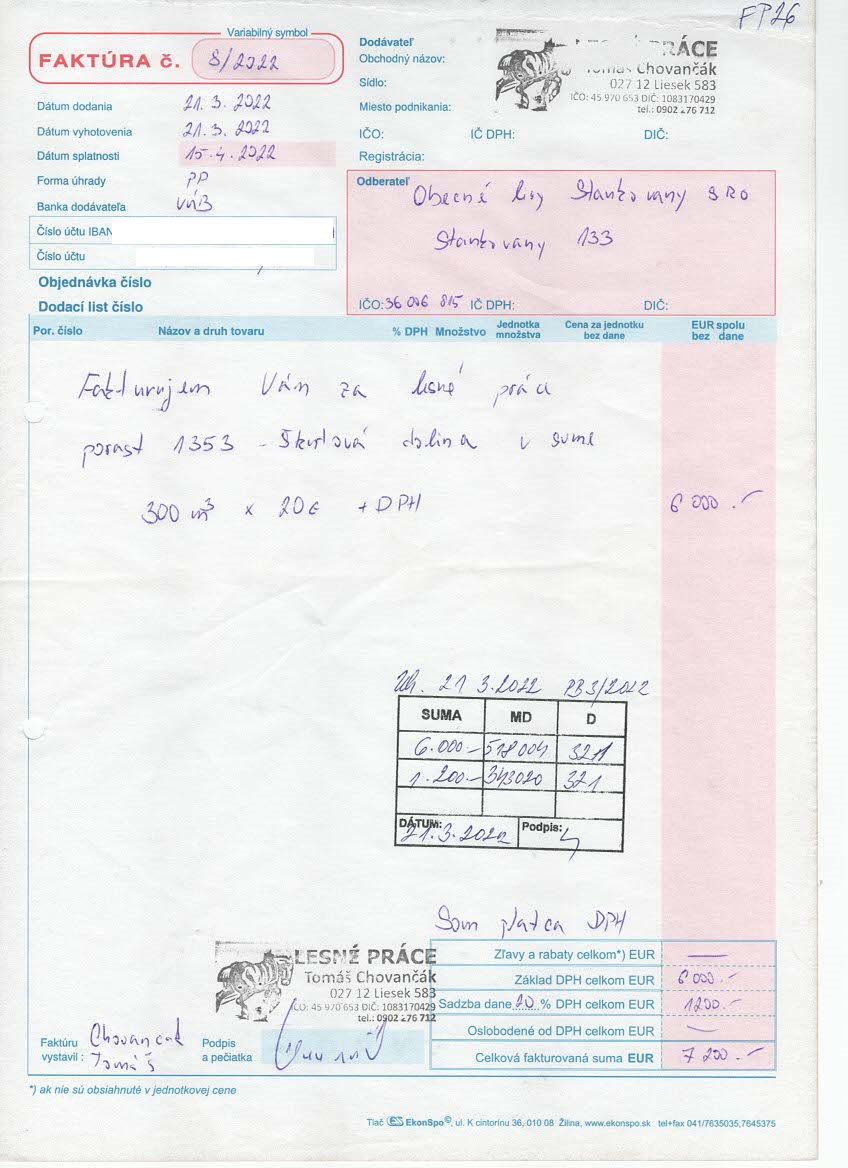 FP26
Variabilný symbol
FAKTÚRA č. 8/2022
Dátum dodania 21. 3. 2022
Dátum vyhotovenia 21. 3. 2022
Dátum splatnosti 15. 4. 2022
Forma úhrady PP
Banka dodávateľa VÚB
Číslo účtu IBAN
Číslo účtu
Objednávka číslo
Dodací list číslo
Dodávateľ
Obchodný názov:
Sídlo:
Miesto podnikania:
IČO: IČ DPH: DIČ:
Registrácia:
LESNÉ PRÁCE
Tomáš Chovančák
027 12 Liesek 583
IČO: 45 970 653 DIČ: 1083170429
tel.: 0902 276 712
Odberateľ Obecné lesy Stankovany SRO
Stankovany 133
IČO: 36 006 815 IČ DPH: DIČ:
Por. číslo Názov a druh tovaru % DPH Množstvo Jednotka množstva Cena za jednotku bez dane EUR spolu bez dane
Fakturujem Vám za lesné práce
porast 1353 - Škutová dolina v sume
300 m³ x 20€ + DPH 6 000.-
Uh. 21 3.2022 PB3/2022
SUMA MD D
6.000.- 518004 3211
1.200.- 343020 321
DÁTUM: 21.3.2022 Podpis:
Som platca DPH
Zľavy a rabaty celkom*) EUR —
Základ DPH celkom EUR 6 000.-
Sadzba dane 20 % DPH celkom EUR 1200.-
Oslobodené od DPH celkom EUR —
Celková fakturovaná suma EUR 7 200.-
LESNÉ PRÁCE
Tomáš Chovančák
027 12 Liesek 583
IČO: 45 970 653 DIČ: 1083170429
tel.: 0902 276 712
Faktúru vystavil: Chovancak Tomáš
Podpis a pečiatka
*) ak nie sú obsiahnuté v jednotkovej cene
Tlač ES EkonSpo©, ul. K cintorínu 36, 010 08 Žilina, www.ekonspo.sk tel+fax 041/7635035,7645375